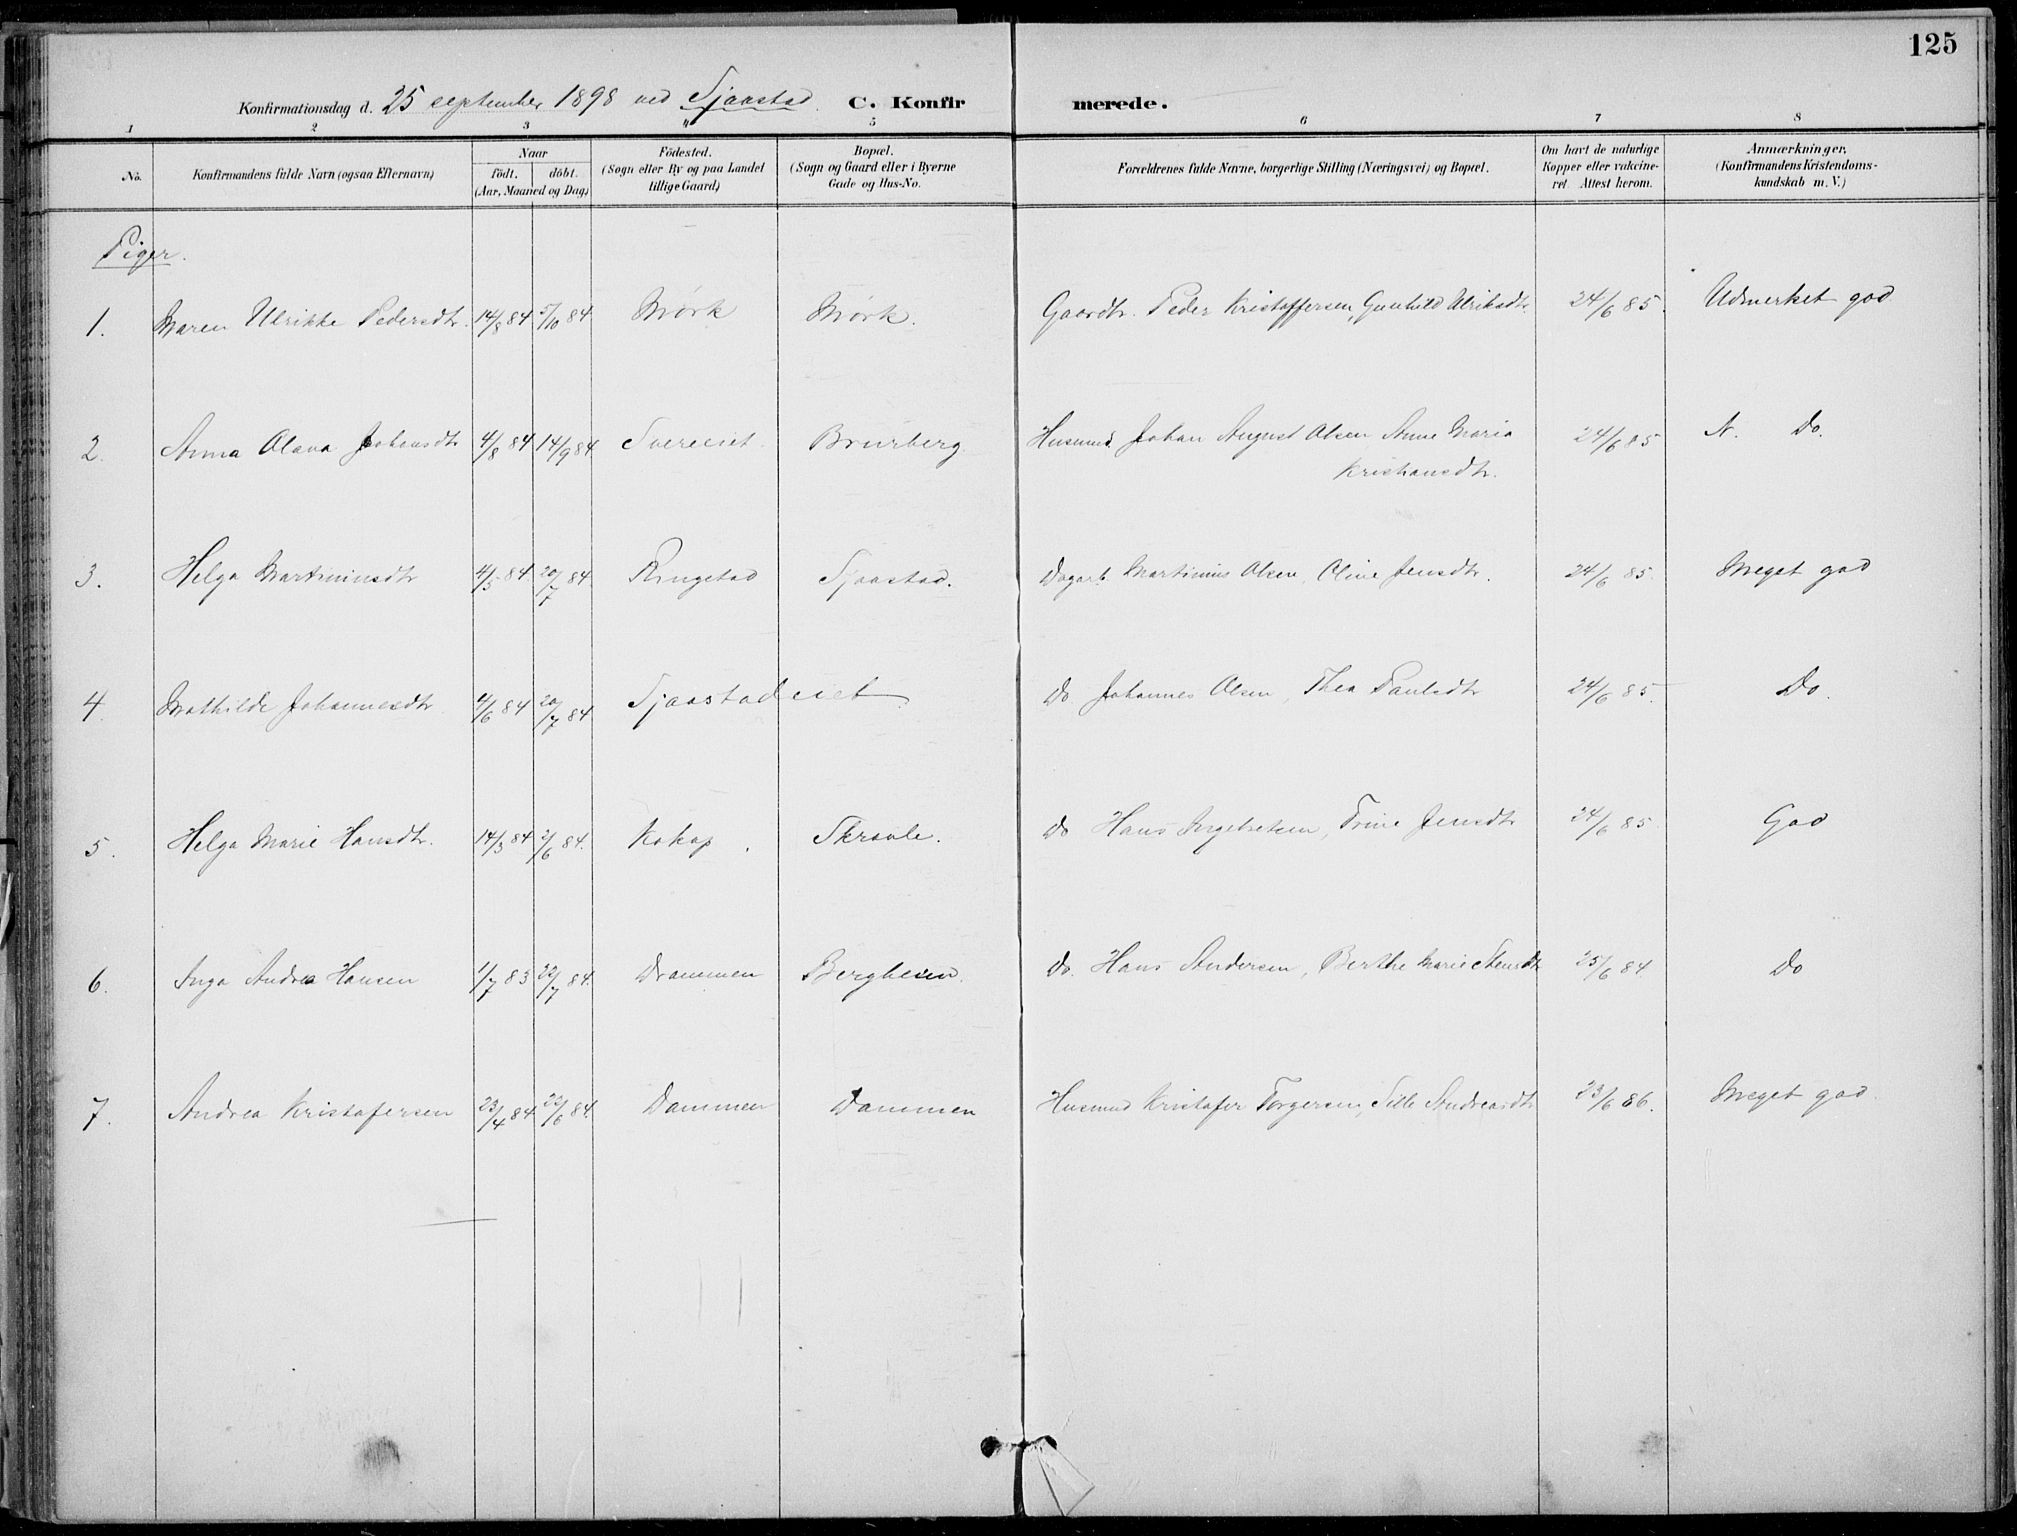 125
Konfirmationsdag d. 25 september 1898 ved Sjaastad. C. Konfirmerede.
1 2 3 4 5 6 7 8
No. Konfirmandens fulde Navn (ogsaa Efternavn) Naar födt. döbt. (Aar, Maaned og Dag) Födested. (Sogn eller By og paa Landet tillige Gaard) Bopæl. (Sogn og Gaard eller i Byerne Gade og Hus-No. Forældrenes fulde Navne, borgerlige Stilling (Næringsvei) og Bopæl. Om havt de naturlige Kopper eller vakcineret. Attest herom. Anmærkninger, (Konfirmandens Kristendomskundskab m. V.)
Piger.
1. Maren Ulrikke Pedersdtr. 14/8 84 5/10 84 Mørk Mørk. Gaardbr. Peder Kristoffersen, Gunhild Ulriksdtr. 24/6 85. Udmerket god
2. Anna Olava Johansdtr 4/8 84 14/9 84 Brurberg Husmd. Johan August Olsen Anne Maria
Kristiansdtr. 24/6 85 N. Do.
3. Helga Martiniusdtr 4/5 84. 20/7 84. Ringstad Sjaastad. Dagarb. Martinius Olsen, Oline Jensdtr. 24/6 85. Meget god
4. Mathilde Johannesdtr 4/6 84 20/7 84. Sjaastadeiet Do Johannes Olsen, Thea Paulsdtr 24/6 85. Do.
5. Helga Marie Hansdtr. 14/3 84 2/6 84. Kokop. Skravle. Do Hans Ingebretsen, Trine Jensdtr 24/6 85. God
6. Inga Andrea Hansen 1/7 83 22/7 84. Drammen Do. Hans Andersen, Berthe Marie Stensdtr 25/6 84. Do
7. Andrea Kristofersen 23/4 84 22/6 84. Dammen Dammen Husmd Kristofer Torgersen, Sille Andreasdtr 23/6 86. Meget god.